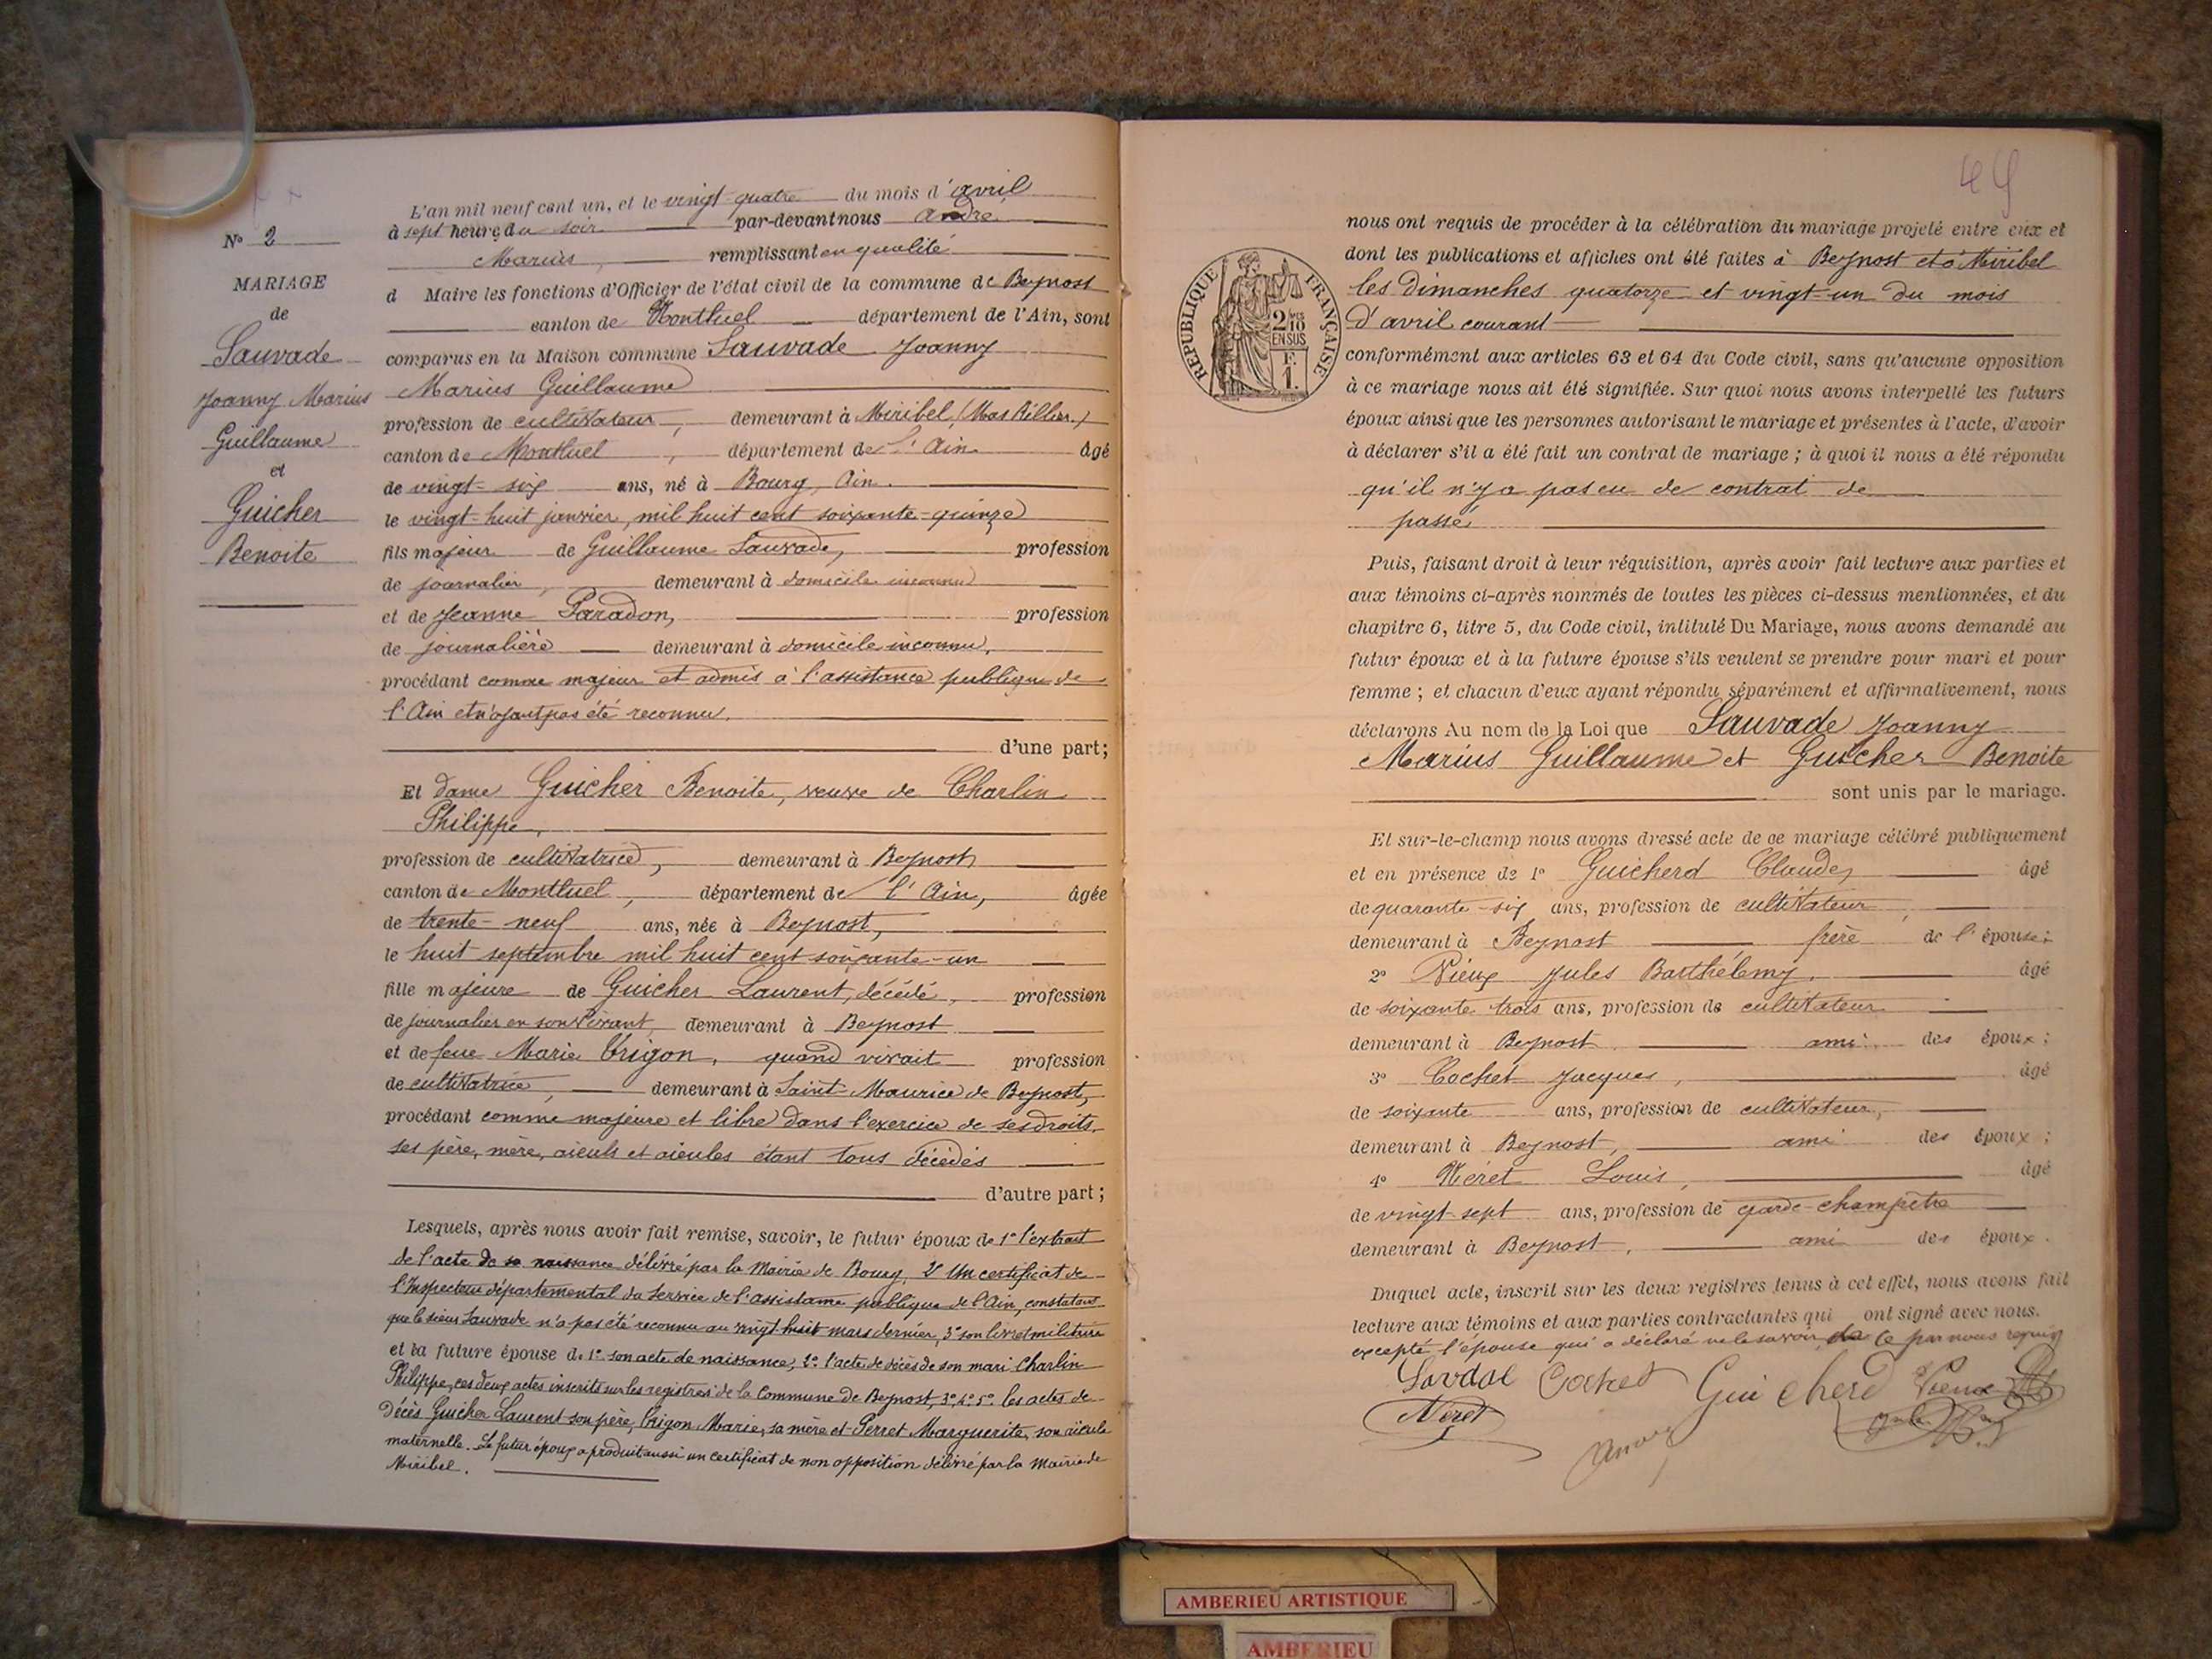 N° 2
MARIAGE
de
Sauvade
Joanny Marius
Guillaume
et
Guicher
Benoite
L'an mil neuf cent un, et le vingt-quatre du mois d'avril
à sept heures du soir par-devant nous André
Marius, remplissant en qualité
d Maire les fonctions d'Officier de l'état civil de la commune de Beynost
canton de Montluel département de l'Ain, sont
comparus en la Maison commune Sauvade Joanny
Marius Guillaume
profession de cultivateur, demeurant à Miribel, (Mas Rillier.)
canton de Montluel, département de l'Ain âgé
de vingt-six ans, né à Bourg, Ain.
le vingt-huit janvier, mil huit cent soixante-quinze
fils majeur de Guillaume Sauvade, profession
de journalier, demeurant à domicile inconnu
et de Jeanne Paradon, profession
de journalière demeurant à domicile inconnu,
procédant comme majeur et admis à l'assistance publique de
l'Ain et n'ayant pas été reconnu.
d'une part;
Et Dame Guicher Benoite, veuve de Charlin
Philippe,
profession de cultivatrice, demeurant à Beynost
canton de Montluel, département de l'Ain, âgée
de trente-neuf ans, née à Beynost,
le huit septembre mil huit cent soixante-un
fille majeure de Guicher Laurent, décédé, profession
de journalier en son vivant, demeurant à Beynost
et de feue Marie Trigon, quand vivait profession
de cultivatrice, demeurant à Saint-Maurice de Beynost,
procédant comme majeure et libre dans l'exercice de ses droits,
ses père, mère, aieuls et aieules étant tous décédés
d'autre part;
Lesquels, après nous avoir fait remise, savoir, le futur époux de 1° l'extrait
de l'acte de sa naissance délivré par la Mairie de Bourg, 2° Un certificat de
l'Inspecteur départemental du Service de l'assistance publique de l'Ain, constatant
que le sieur Sauvade n'a pas été reconnu au vingt huit mars dernier, 3° son livret militaire
et la future épouse de 1° son acte de naissance, 2° l'acte de décès de son mari Charlin
Philippe, ces deux actes inscrits sur les registres de la Commune de Beynost, 3°, 4°, 5° les actes de
Décès Guicher Laurent son père, Trigon Marie, sa mère et Perret Marguerite, son aïeule
maternelle. Le futur époux a produit aussi un certificat de non opposition délivré par la Mairie de
Miribel.
nous ont requis de procéder à la célébration du mariage projeté entre eux et
dont les publications et affiches ont été faites à Beynost et à Miribel
les Dimanches quatorze et vingt-un du mois
d'avril courant
conformément aux articles 63 et 64 du Code civil, sans qu'aucune opposition
à ce mariage nous ait été signifiée. Sur quoi nous avons interpellé les futurs
époux ainsi que les personnes autorisant le mariage et présentes à l'acte, d'avoir
à déclarer s'il a été fait un contrat de mariage; à quoi il nous a été répondu
qu'il n'y a pas eu de contrat de
passé
Puis, faisant droit à leur réquisition, après avoir fait lecture aux parties et
aux témoins ci-après nommés de toutes les pièces ci-dessus mentionnées, et du
chapitre 6, titre 5, du Code civil, intitulé Du Mariage, nous avons demandé au
futur époux et à la future épouse s'ils veulent se prendre pour mari et pour
femme; et chacun d'eux ayant répondu séparément et affirmativement, nous
déclarons Au nom de la Loi que Sauvade Joanny
Marius Guillaume et Guicher Benoite
sont unis par le mariage.
Et sur-le-champ nous avons dressé acte de ce mariage célébré publiquement
et en présence de 1° Guicherd Claude, âgé
de quarante-six ans, profession de cultivateur,
demeurant à Beynost frère de l'épouse;
2° Vieux Jules Barthélemy, âgé
de soixante trois ans, profession de cultivateur
demeurant à Beynost ami des époux;
3° Cochet Jacques, âgé
de soixante ans, profession de cultivateur,
demeurant à Beynost, ami des époux;
4° Néret Louis, âgé
de vingt-sept ans, profession de garde-champêtre
demeurant à Beynost, ami des époux.
Duquel acte, inscrit sur les deux registres tenus à cet effet, nous avons fait
lecture aux témoins et aux parties contractantes qui ont signé avec nous.
excepté l'épouse qui a déclaré ne le savoir de ce par nous requis
Cochet Guicherd Vieux
Néret
RÉPUBLIQUE FRANÇAISE
2/10
EN SUS
F.
1.
AMBERIEU ARTISTIQUE
AMBERIEU